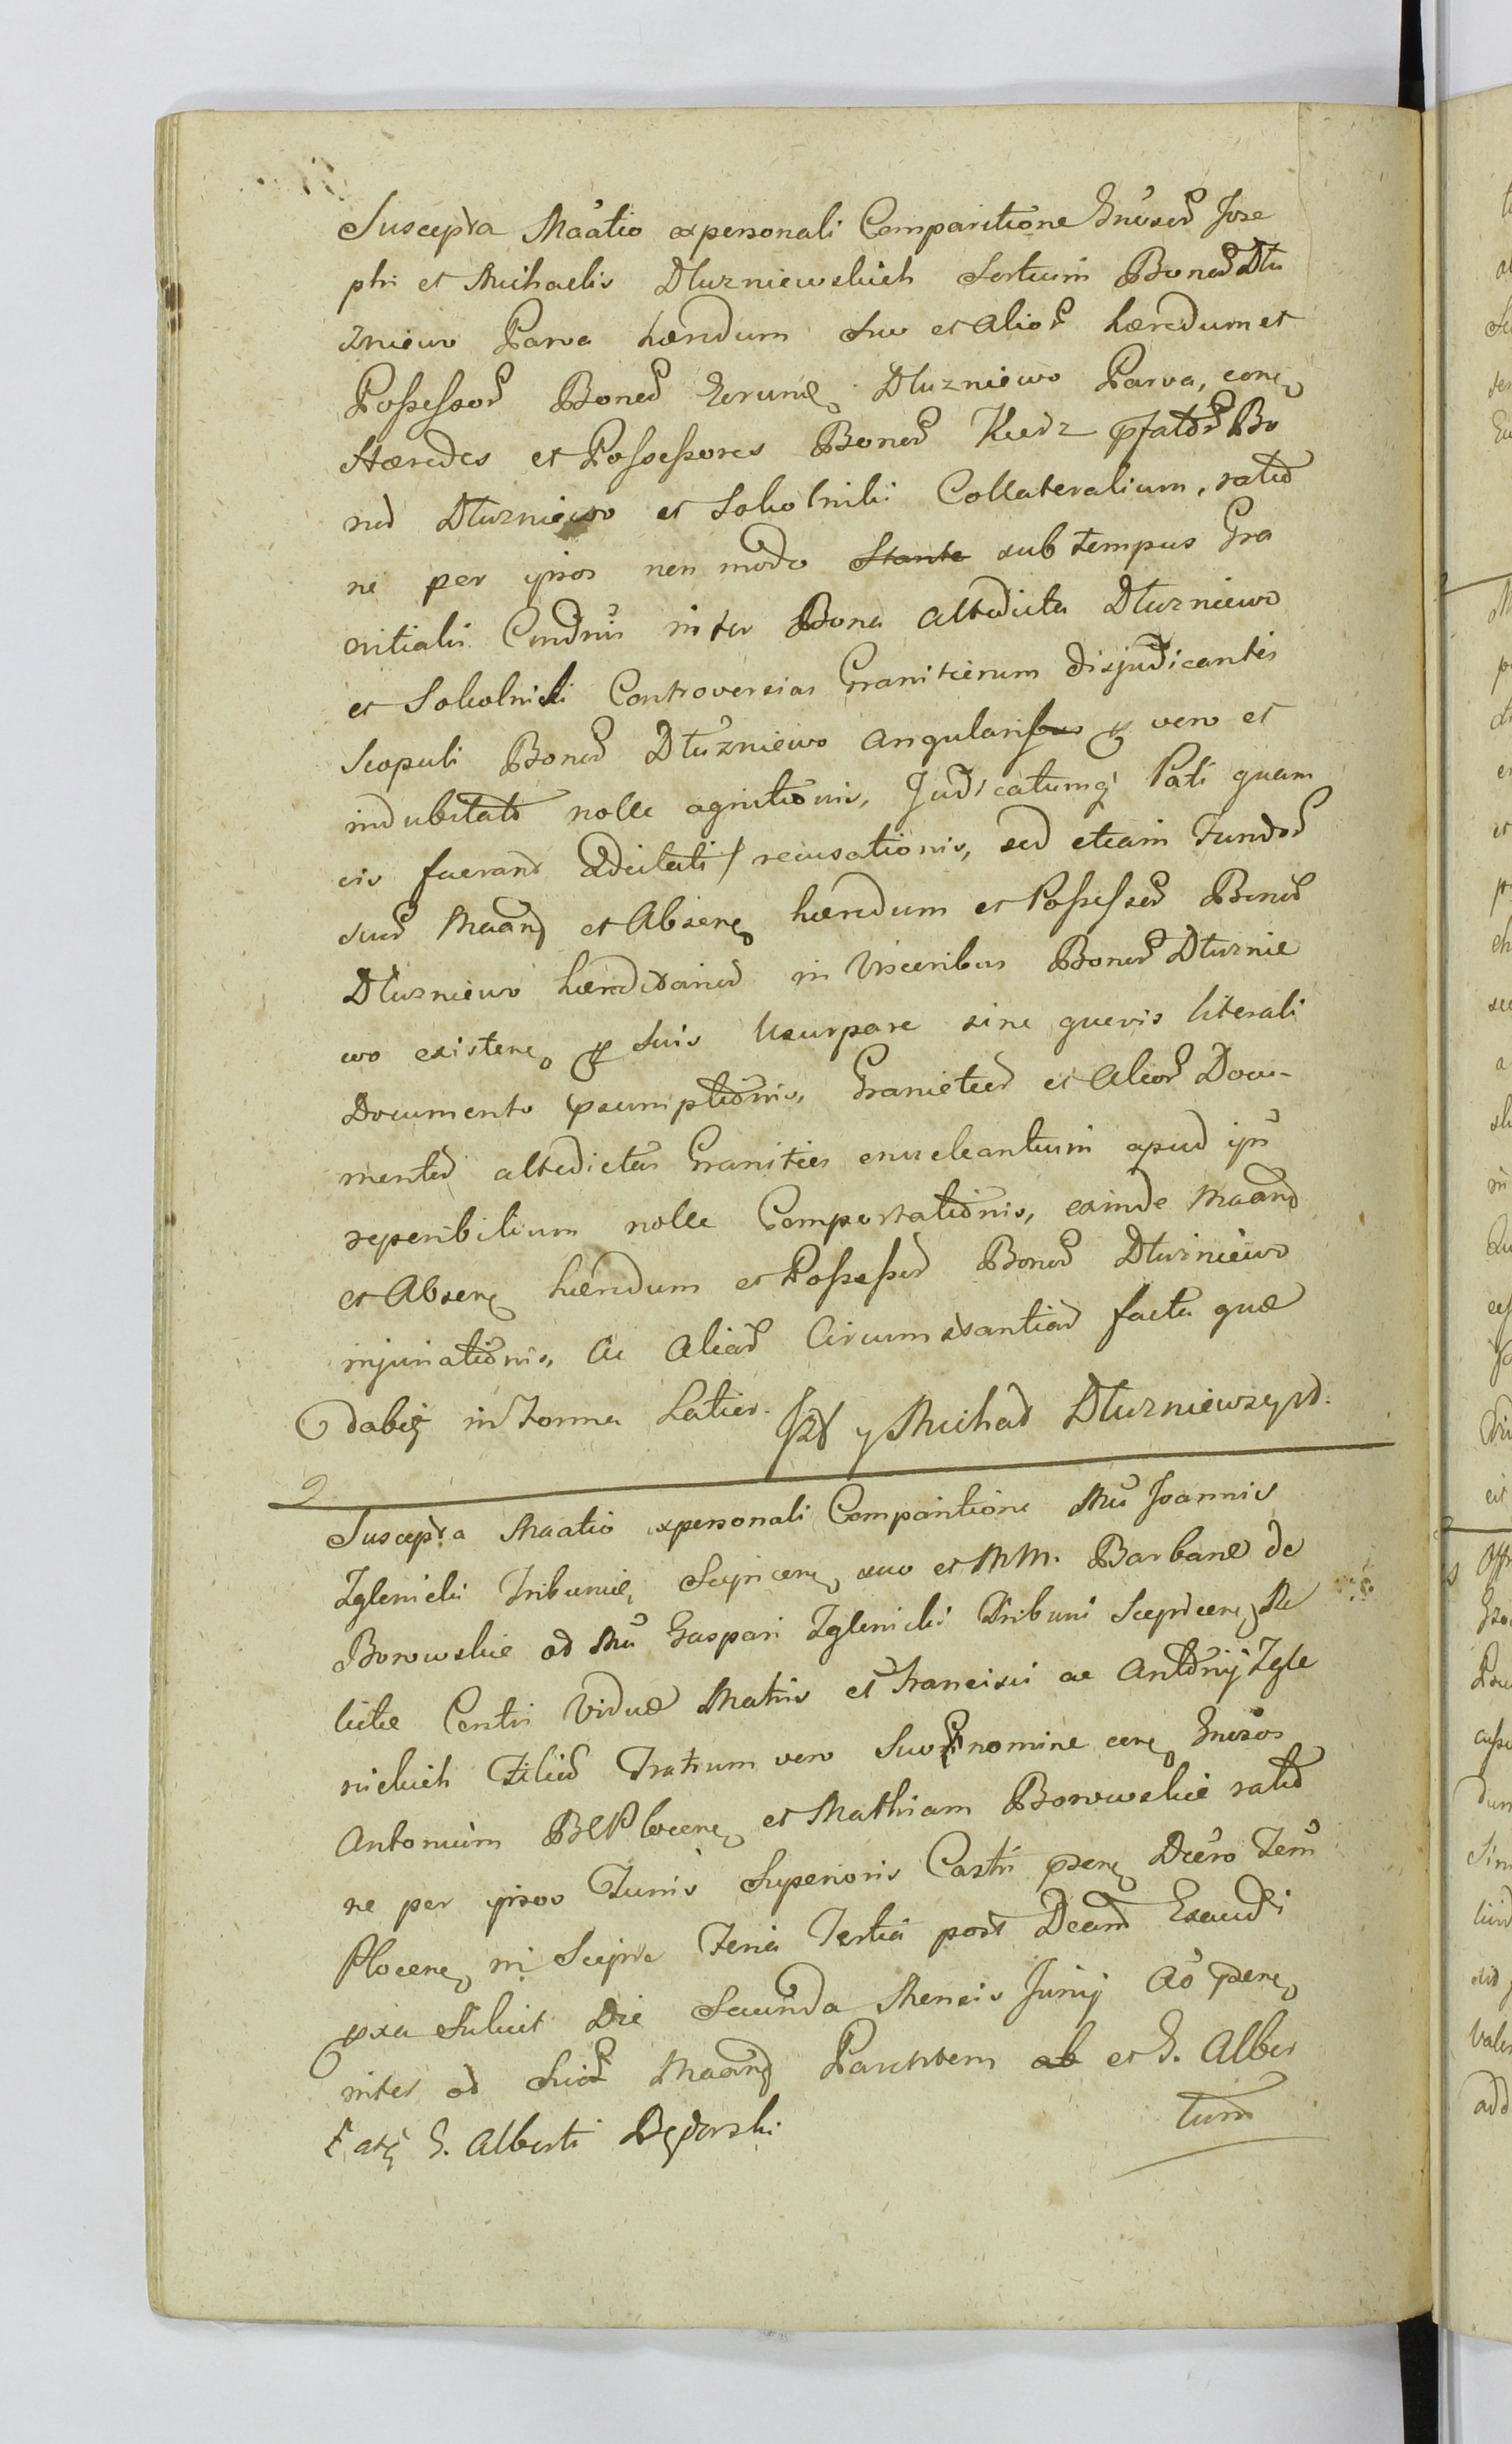 Suscepta Maatio expersonali Comparitione Gnūsor Jose
phi et Michaelis Dluzniewskich Sortium Bonor Dlu
zniewo Parva hændum suo et Alior hæredum et
Possessor Bonor Eorund Dluzniewo Parva, cone
Hæredes et Possessores Bonor Kudz pfator Bo
nor Dluzniewo et Sokolniki Collateralium, ratio
ne per ipsos non modo Stante sub tempus Gra
nitialis Condnis inter Bona Altedicta Dluzniewo
et Sokolniki Controversias Granicierum disjudicantis
Scopuli Bonor Dluzniewo Angularis p vero et
indubitato nolle agnitionis, Judicatumq Pati quam
eis fuerant Adcitati / recusationis, sed etiam Fundor
suor Maand et Absene hæredum et Possessor Bonor
Dluzniewo hæreditarior in Visceribus Bonor Dluznie
wo existene p suis Usurpare sine quovis literali
Documento psumptionis, Granicieor et Alior Docu-
mentor altedictas Granities enucleantium apud ips
reperibilium nolle Comportationis, exinde Maand
et Absene hæredum et Possessor Bonor Dluzniewo
injuriationis, Ac Aliar Circumstantiar facta quæ
dabit in Forma Latior. Jzf y Michał Dluzniewscy rd.
Suscepta Maatio expersonali Comparitione Mū Joannis
Zglenicki Tribunid, Scepricene suo et MM. Barbaræ de
Borowskie od Mū Gaspari Zglenicki Tribuni Scepricene Re
lictæ Consortis Viduæ Matris et Francisci ac Antonij Zgle
nickich Filior Fratrum vero Suor nomine cone Gnūsos
Antonium BP Plocene et Mathiam Borowskie ratio
ne per ipsos Furis Superioris Castri psene Decro Term
Plocene in Sceprc Feria Tertia post Dcam Exaudi
pxa Fuluit Die Secunda Mensis Junij Ao psene
inter od Suor Maand Parentem ab et G. Alber
G. Alberti Będorski
tum